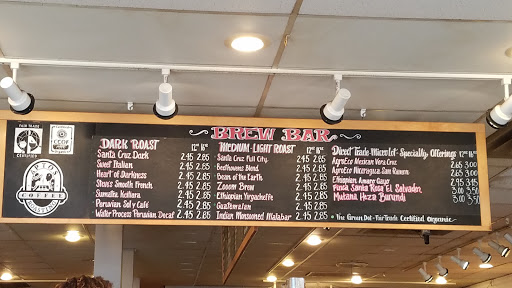 BREW BAR
FAIR TRADE
CERTIFIED
CCOF
COFFEE
DARK ROAST 12oz 16oz
Santa Cruz Dark 2.45 2.85
Sweet Italian 2.45 2.85
Heart of Darkness 2.45 2.85
Sten's Smooth French 2.45 2.85
Sumatra Ketiara 2.45 2.85
Peruvian Sol y Café 2.45 2.85
Water Process Peruvian Decaf 2.45 2.85
MEDIUM-LIGHT ROAST 12oz 16oz
Santa Cruz Full City 2.45 2.85
Beethovens Blend 2.45 2.85
Bean of the Earth 2.45 2.85
Zooom Brew 2.45 2.85
Ethiopian Yirgacheffe 2.45 2.85
Guatemalan 2.45 2.85
Indian Monsooned Malabar 2.45 2.85
Direct Trade Micro Lot Specialty Offerings 12oz 16oz
AgroEco Mexican Vera Cruz 2.65 3.00
AgroEco Nicaragua San Ramon 2.65 3.00
Ethiopian Amaro Gayo 2.95 3.45
Finca Santa Rosa El Salvador 3.00 3.50
Mutana Heza Burundi 3.00 3.50
• The Green Dot-FairTrade Certified Organic